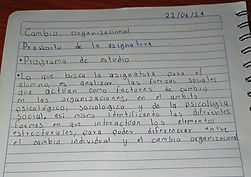 21/06/21
Cambio organizacional
Proposito de la asignatura
• Programa de estudio
• Lo que busca la asignatura para el
alumno, es analizar las fuerzas sociales
que actúan como factores de cambio
en las organizaciones, en el ambito
psicologico, sociologico y de la psicología
social, asi mismo identificando las diferentes
formas en que interactuan los elementos
estructurales, para poder diferenciar entre
el cambio individual y el cambio organizacional